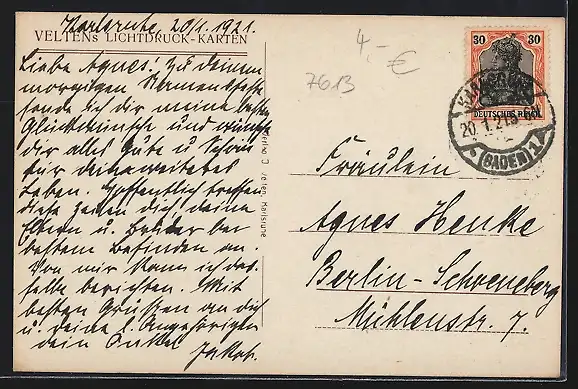 Karlsruhe, 20/1. 1921.
VELTENs LICHTDRUCK-KARTEN
Liebe Agnes! Zu deinem
morgigen Namensfeste
sende ich dir meine besten
Glückwünsche und wünsche
dir alles Gute u. Schöne
für dein weiteres
Leben. Hoffentlich treffen
diese Zeilen dich, deine
Eltern u. Brüder bei
bestem Befinden an.
Von mir kann ich das-
selbe berichten. Mit
besten Grüssen an dich
u. deine l. Angehörigen
dein Onkel
Jakob.
4,- €
7613
30 30
DEUTSCHES REICH
KARLSRUHE
20.1.21.
(BADEN) 1
Karlsruhe
Fräulein
Agnes Henke
Berlin-Schoeneberg
Mühlenstr. 7.